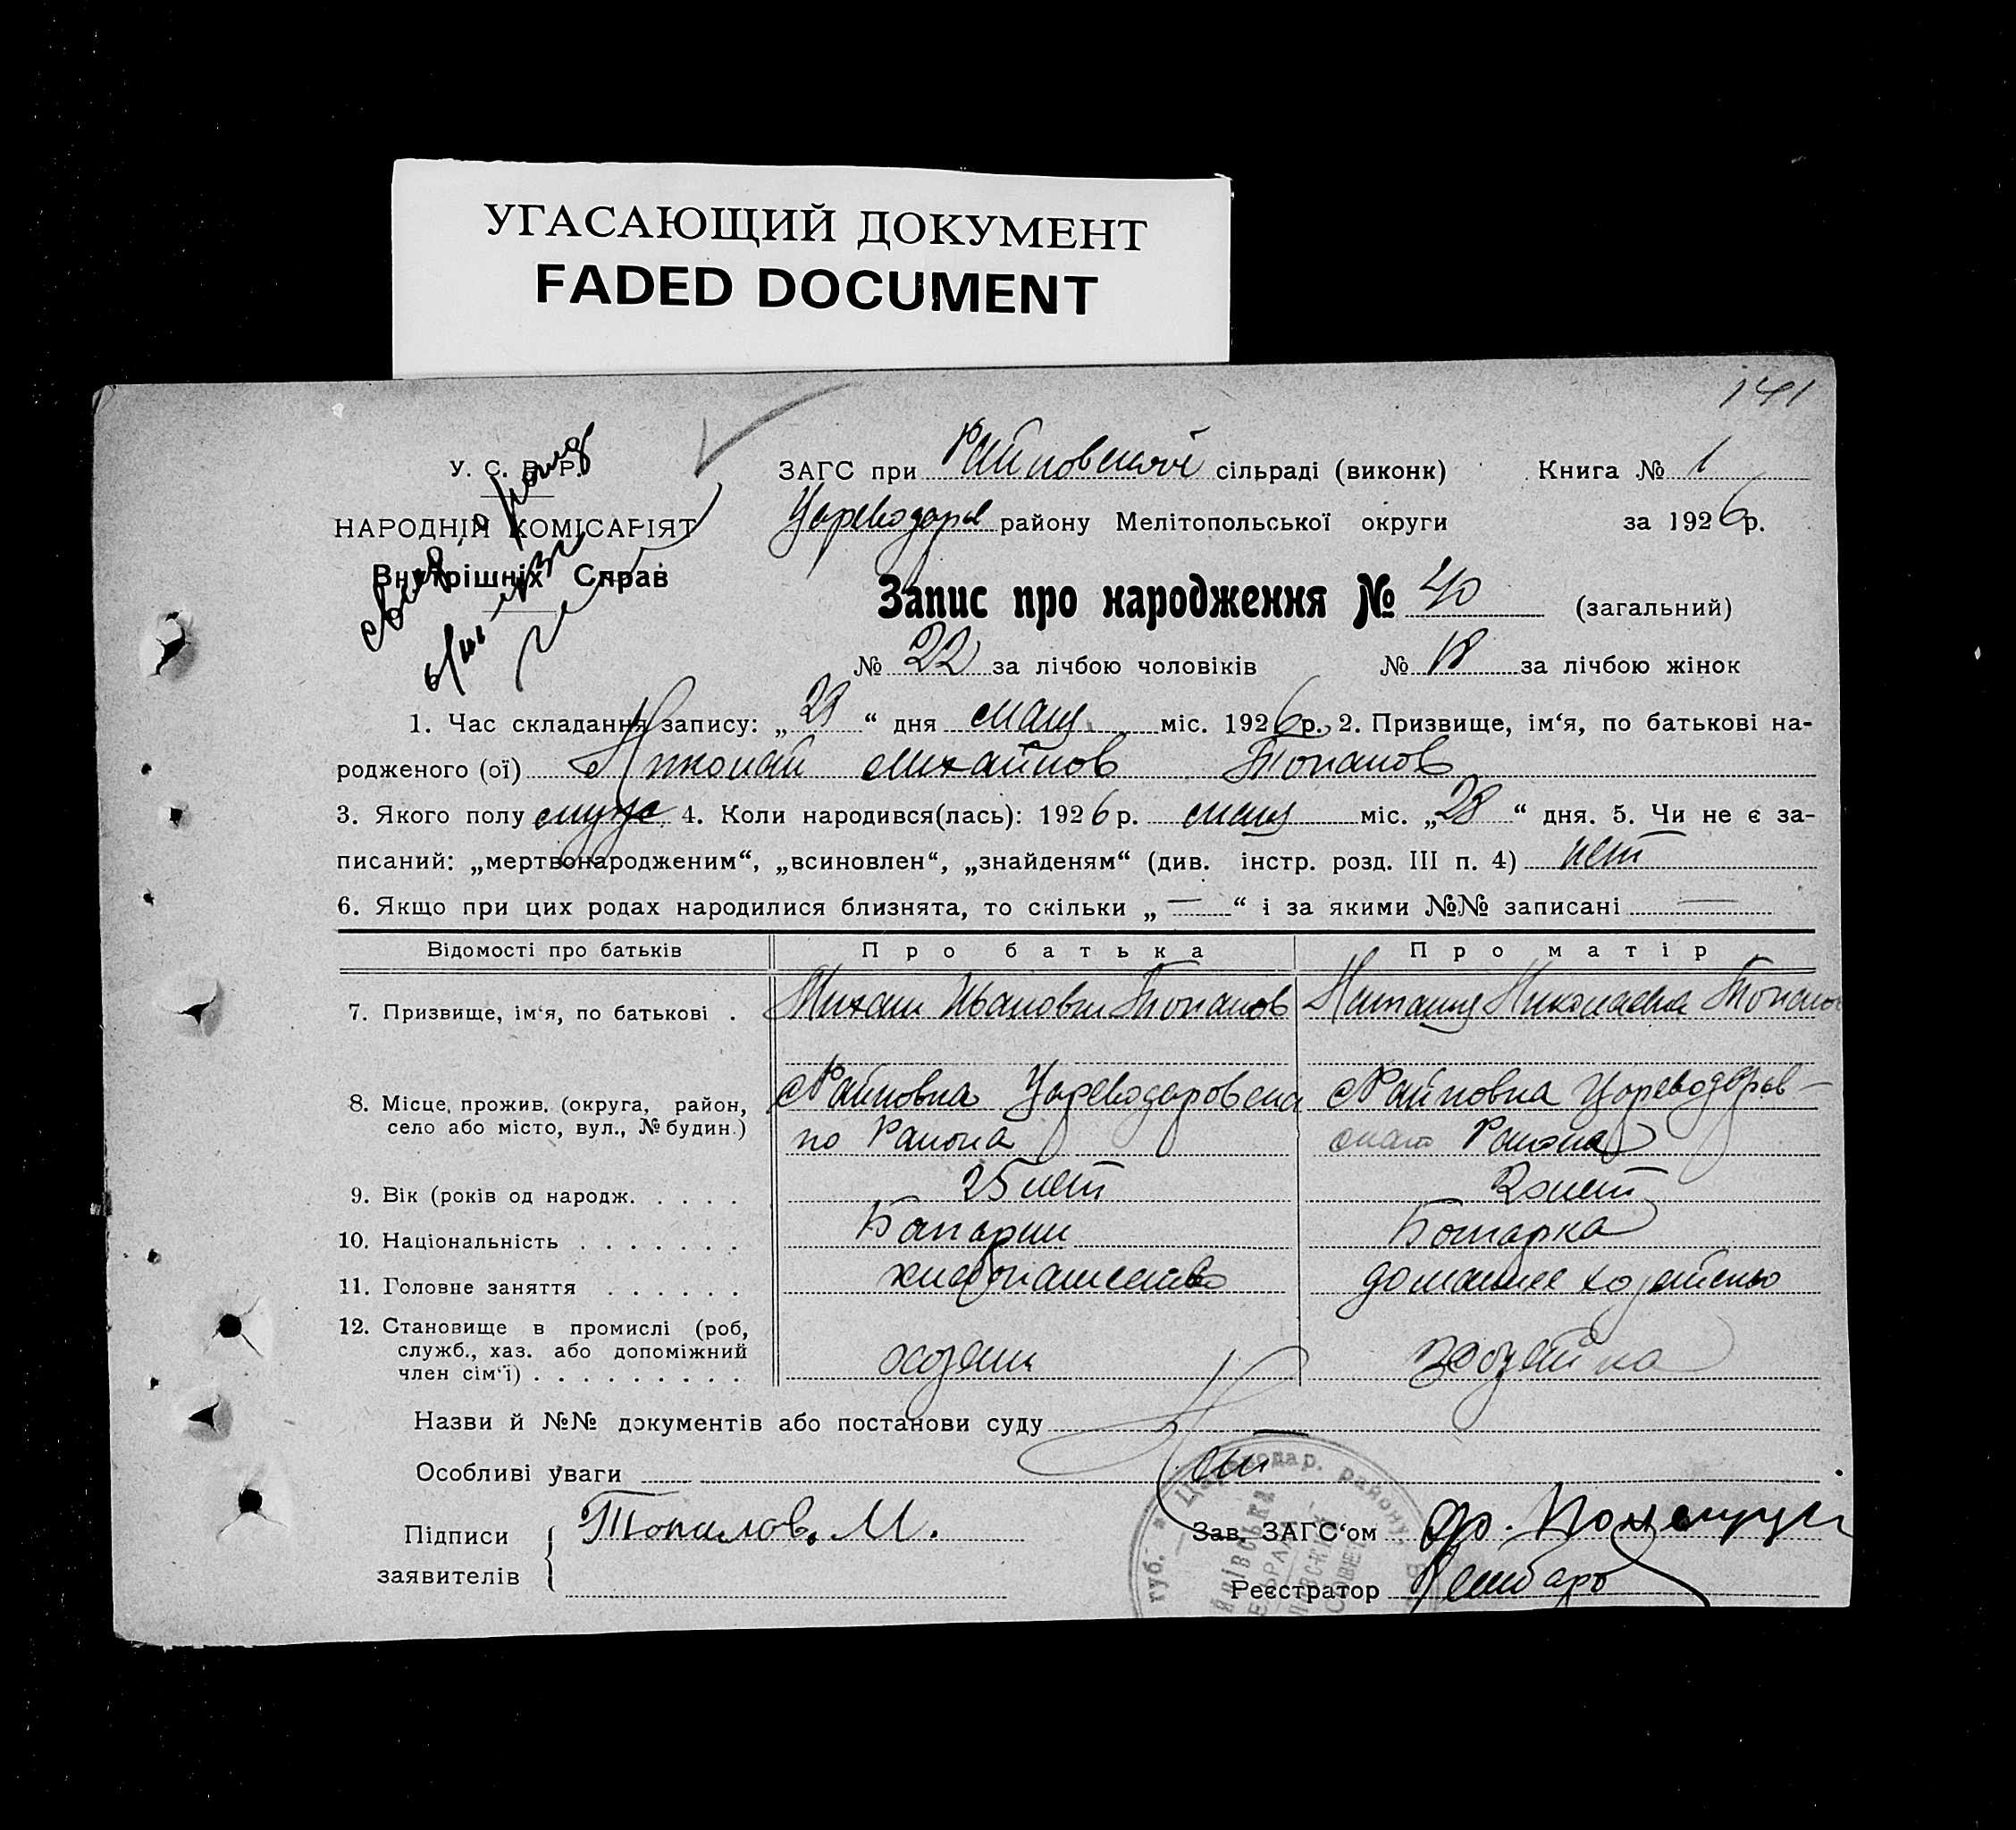 УГАСАЮЩИЙ ДОКУМЕНТ
FADED DOCUMENT
141
У. С. Р. Р.
НАРОДНІЙ КОМІСАРІЯТ
Внутрішніх Справ
ЗАГС при Райновской сільраді (виконк) Книга № 1
Цареводар району Мелітопольської округи за 1926р.
Запис про народження № 40 (загальний)
№ 22 за лічбою чоловіків № 18 за лічбою жінок
1. Час складання запису: „29“ дня мая міс. 1926р., 2. Призвище, ім‘я, по батькові на-
родженого (ої) Николай Михайлов Топалов
3. Якого полу муж 4. Коли народився(лась): 1926р. мая міс. „28“ дня. 5. Чи не є за-
писаний: „мертвонародженим“, „всиновлен“, „знайденям“ (див. інстр. розд. III п. 4) нет
6. Якщо при цих родах народилися близнята, то скільки „—“ і за якими №№ записані —
Відомості про батьків Про батька Про матір
7. Призвище, ім‘я, по батькові . Михаил Иванович Топалов Наталия Николаевна Топалов
8. Місце прожив. (округа, район, село або місто, вул., № будин.) с Райновка Цареводаровска
го Района с Райновка Цареводаров-
скаго Района
9. Вік (років од народж. . . . . 25 лет 20 лет
10. Національність . . . . . . . Болгарин Болгарка
11. Головне заняття . . . . . . хлебопашество домашнее хозяйство
12. Становище в промислі (роб, служб., хаз. або допоміжний член сім‘ї) . . . . . . . . . хозяин хозяйка
Назви й №№ документів або постанови суду
Особливі уваги Нет
Підписи
заявителів
Топалов. М.
Зав. ЗАГС‘ом
Реєстратор
губ. * Цареводар. району